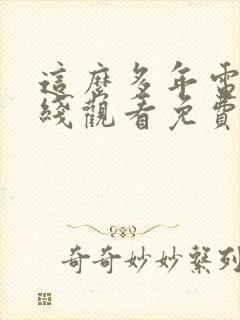 這麼多年電
綫觀看免費
奇奇妙妙繫列